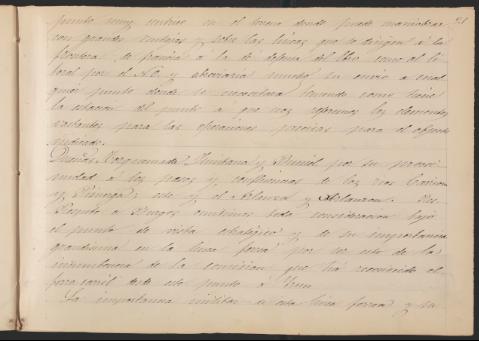 punto muy centrico en el terreno donde puede maniobrar 21
con grandes ventajas y sobre las lineas que se dirigen á la
frontera de francia a la de defensa del Ebro como el li
toral por el N.O. y abreviaria mucho su envio a cual
quier punto donde se necesitara teniendo como tiene
la estacion del punto á que nos referimos los elementos
existentes para las operaciones precisas para el objeto
indicado.
Dueñas, Torquemada, Quintana y Muniol por su proxi
midad á los pasos y confluencias de los rios Carrion
y Pisuerga, este y el Arlanza y Arlanzon.
á Burgos omitimos toda consideracion bajo
el punto de vista estrategico y de su importancia
grandisima en la linea ferrea por ser esto de la
incumbencia de la comision que ha recorrido el
ferro-carril desde este punto a Irun
La importancia militar de esta linea ferrea y su